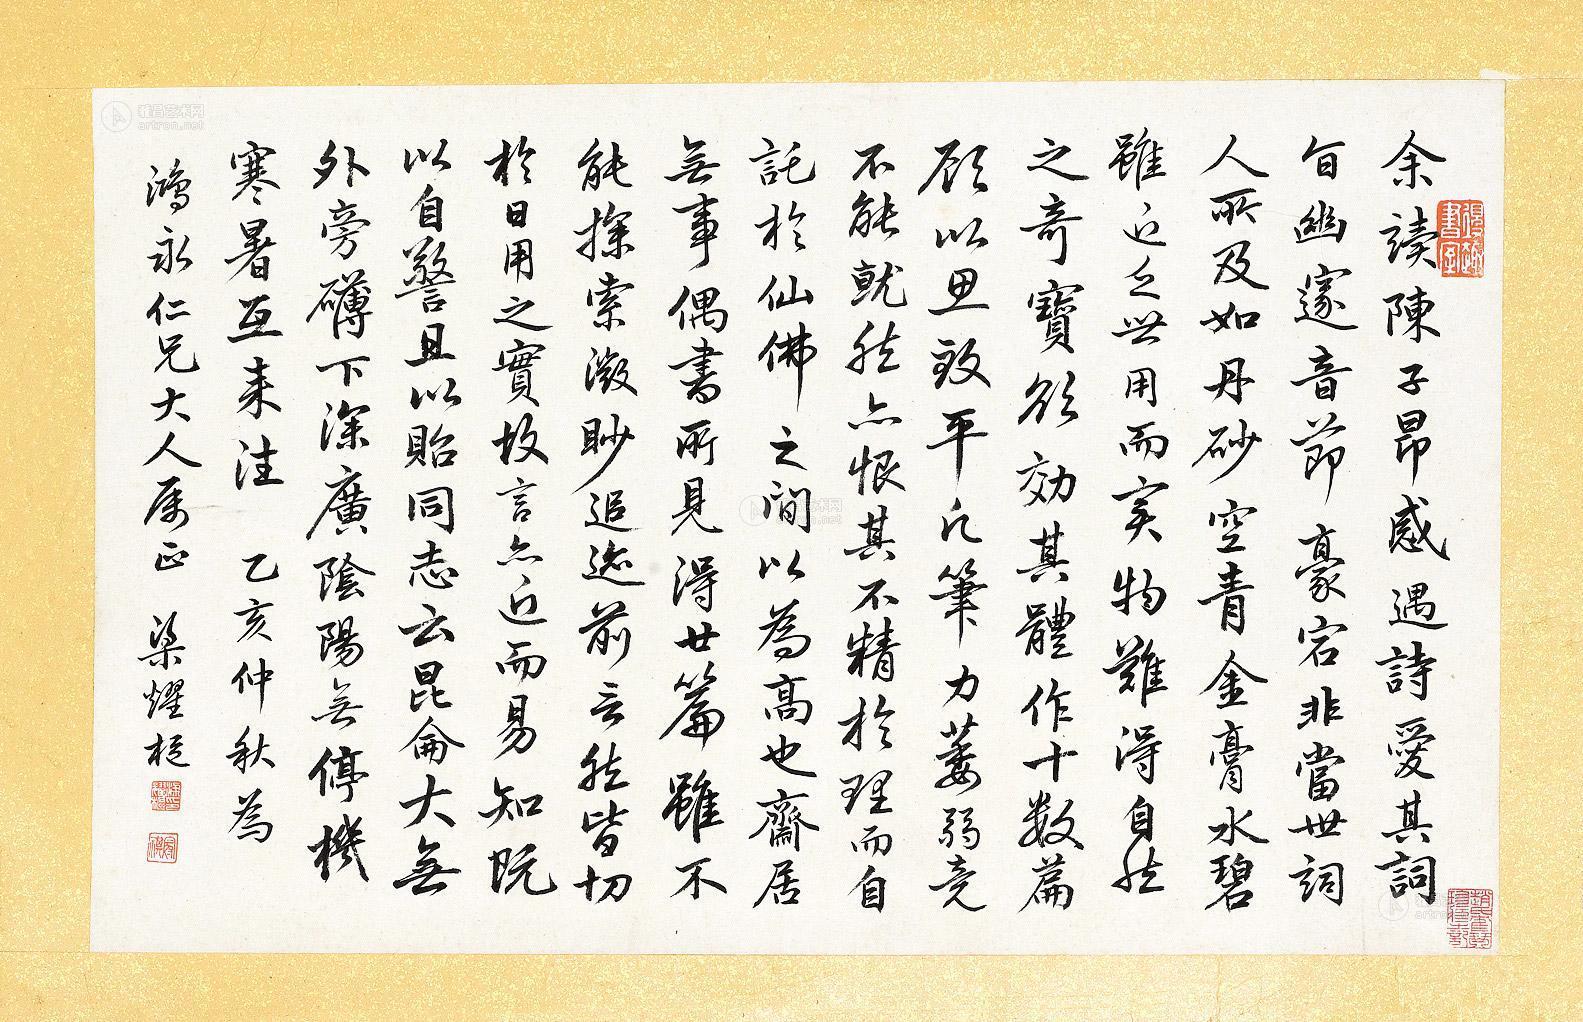 余讀陳子昂感遇詩愛其詞
旨幽邃音節豪宕非當世詞
人所及如丹砂空青金膏水碧
雖近乏世用而实物難得自然
之奇寶欲效其體作十数篇
顧以思致平凡筆力萎弱竟
不能就然亦恨其不精於理而自
託於仙佛之間以為高也齋居
無事偶書所見得廿篇雖不
能探索微眇追迹前言然皆切
於日用之實故言亦近而易知既
以自警且以貽同志云昆侖大無
外旁礴下深廣陰陽無停機
寒暑互来往 乙亥仲秋為
鴻永仁兄大人属正 梁燿樞
雅昌艺术网
artron.net